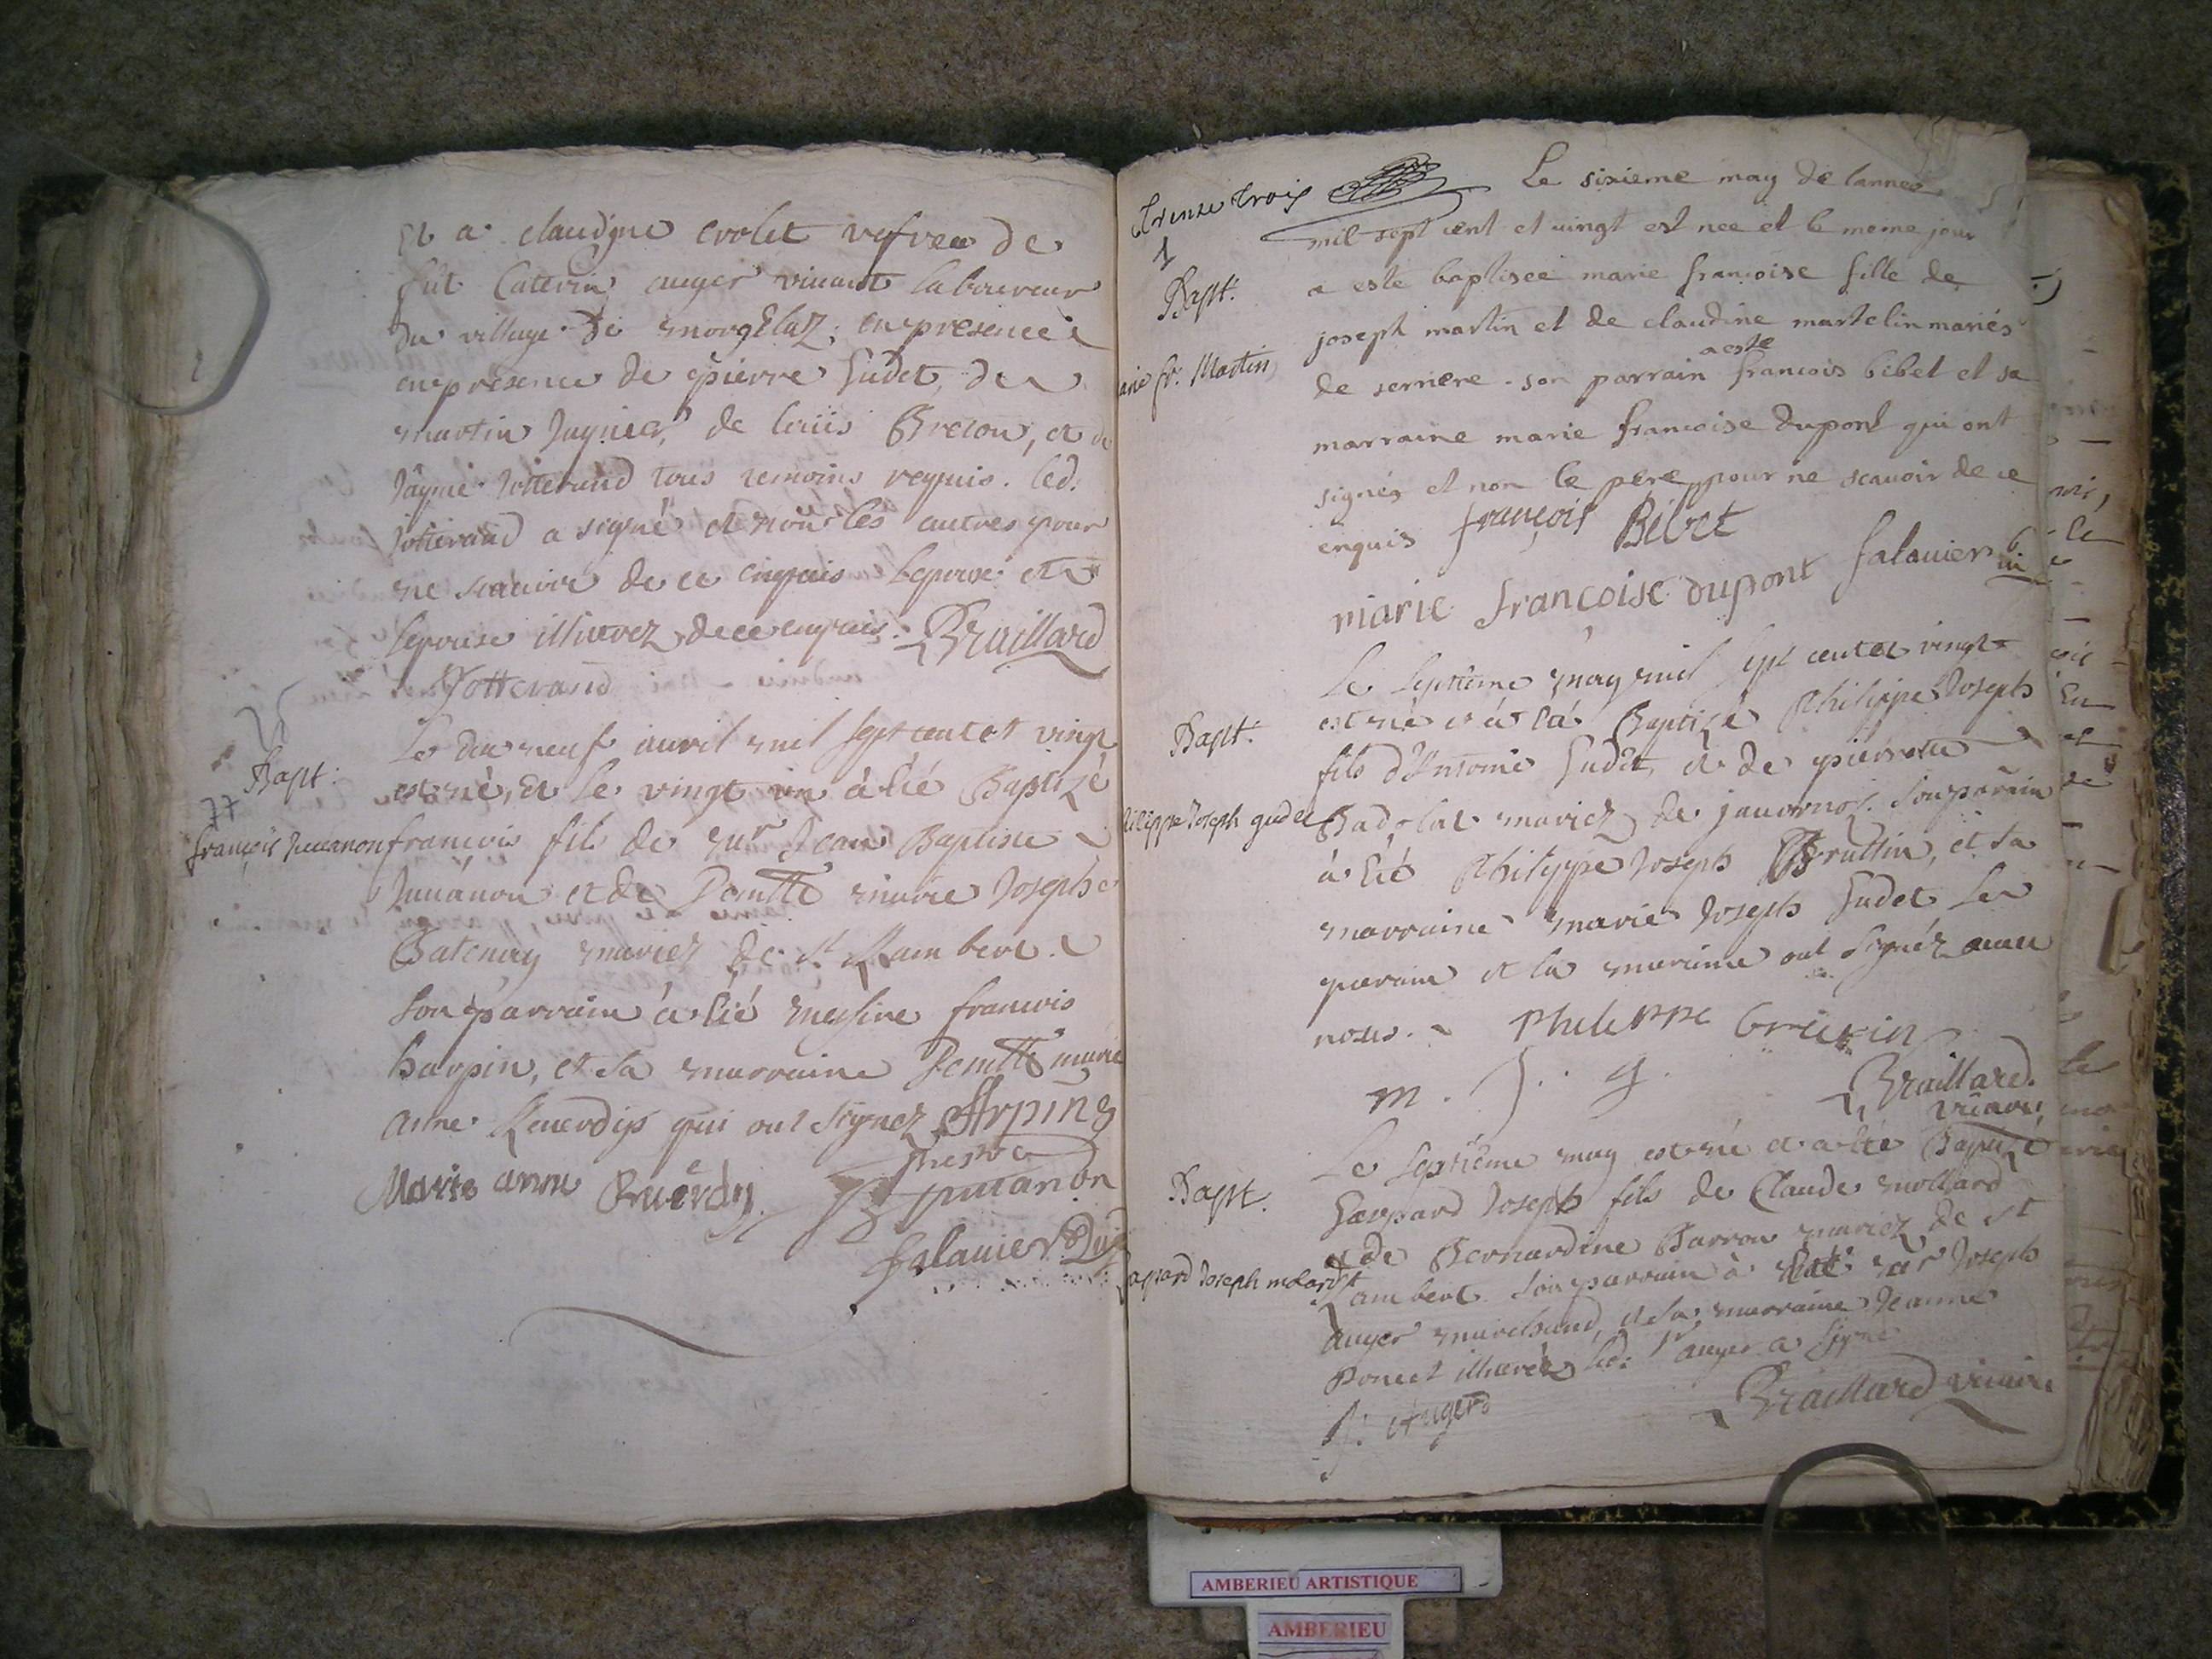 Et a claudine crolet vefven de
fut Caterin auger vivant laboureur
du village de morgelaz, en presence
en presence de pierre Gudet, de
martin Juguier, de loüis Breton, et de
Jayme Jotterand tous temoins requis. led.
Jotterand a signé et non les autres pour
ne scauoir de ce enquis lepoux et
lepouse illiterez de ce enquis. Braillard
Jotterand
Bapt:
françois Juuanon
Le dix neuf auril mil sept cent et vingt
est né, et le vingt un à été Baptizé
francois fils de mr Jean Baptiste
Juuanon et de Demlle marie Josephe
Gatenay mariez de st Rambert.
Son parrain à été messire francois
harpin, et sa marraine Demlle marie
anne Ruerdy qui ont signez Arpin
prestre
Marie anne Ruerdy Juuanon
falauier
Trense trois
1
Le sixieme may de lannee
mil sept cent et vingt est nee et le meme jour
Bapt.
a este baptisee marie francoise fille de
joseph martin et de claudine martelin mariés
arie fr. Martin
a este
de serriere. son parrain francois bibet et sa
marraine marie francoise dupont qui ont
signés et non le pere pour ne scauoir de ce
enquis françois Bibet
marie françoise dupont falauier
Le septieme may mil sept cent et vingt
Bapt.
est né et à été Baptizé Philippe Joseph
fils d'Antoine Gudet, et de pierrette
hilippe Joseph gudet
Badolat mariez de jauornoz. Son parain
à été Philippe Joseph Gruttin, et sa
marraine marie Joseph Gudet le
parain et la maraine ont signéz auec
nous. Philippe Grutin
m. J. g. Braillard
vicaire
Le septième may est né et a été Baptizé
Bapt.
Gaspard Joseph fils de Claude mollard
et de Bernardine Barron mariez de st
aspard Joseph molard
Rambert. Son parrain à été sr Joseph
auger marchand, et sa marraine Jeanne
Poncet illiterée led. sr auger a signé
J. Augerd Braillard vicaire
AMBERIEU ARTISTIQUE
AMBERIEU